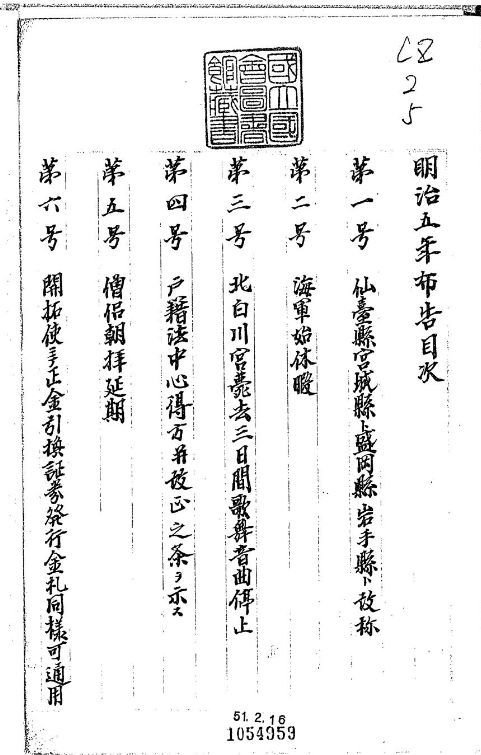 CZ
2
5
國立國
會圖書
館藏書
明治五年布告目次
第一号 仙臺縣宮城縣ト盛岡縣岩手縣ト改称
第二号 海軍始休暇
第三号 北白川宮薨去三日間歌舞音曲停止
第四号 戸籍法中心得方并改正之条ヲ示ス
第五号 僧侶朝拝延期
第六号 開拓使ヨリ正金引換証券発行金札同様可通用
51.2.16
1054959